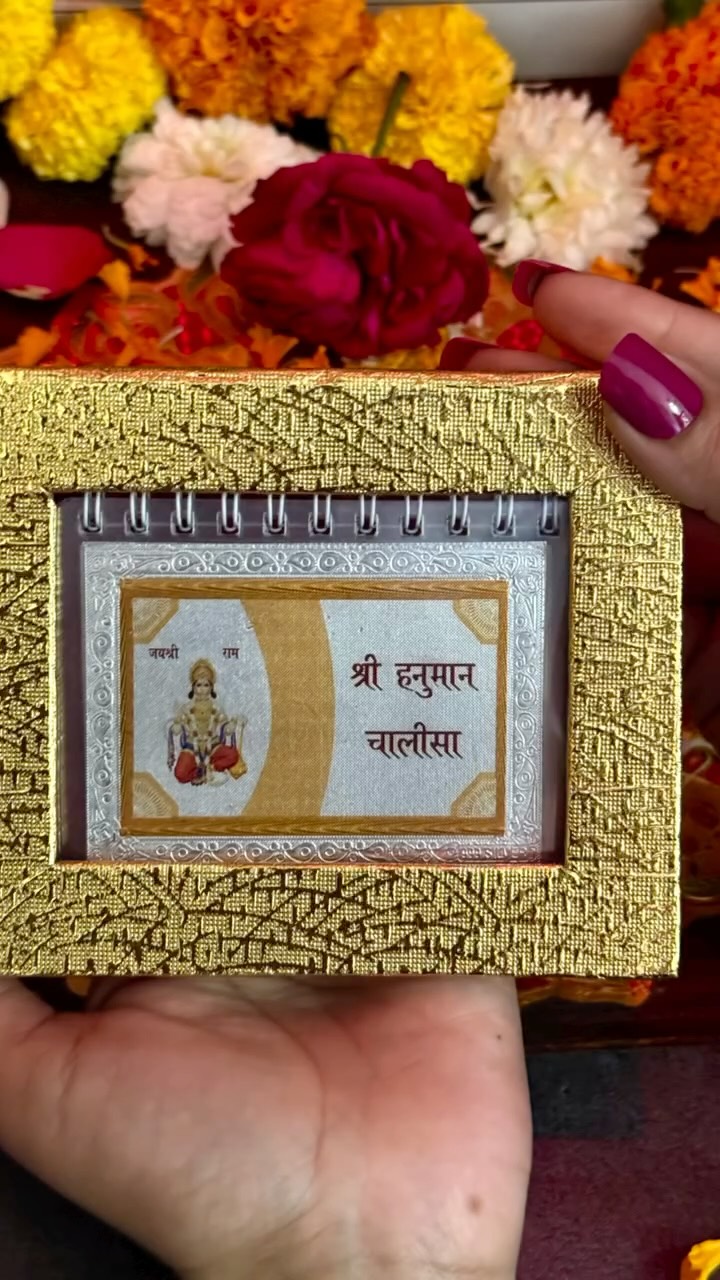 जयश्री राम
श्री हनुमान
चालीसा